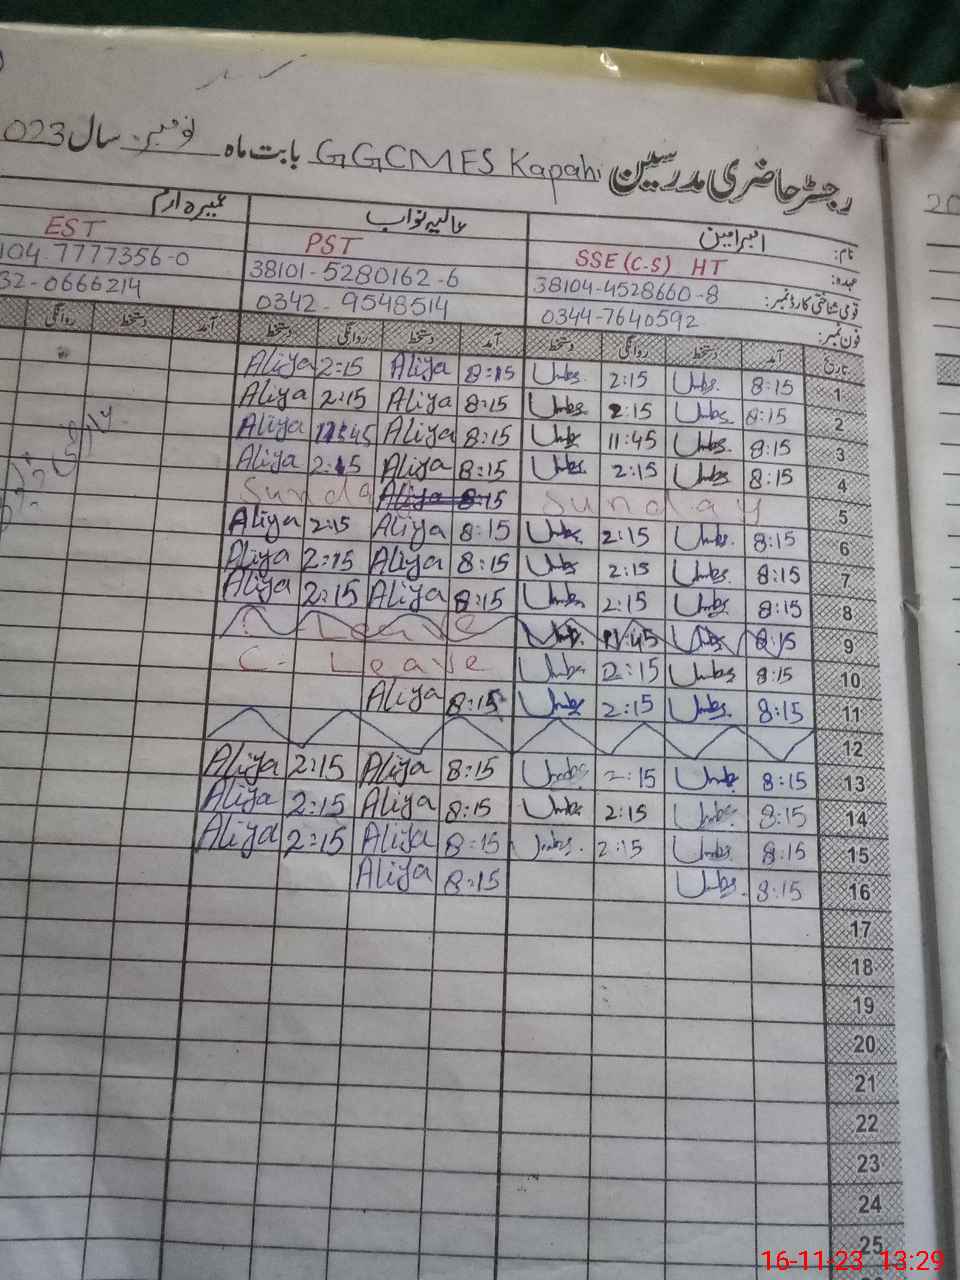 رجسٹر حاضری مدرسین GGCMES Kapahi بابت ماہ نومبر سال 2023
نام: عالیہ نواب
عہدہ: SSE (C-S) HT PST EST
قومی شناختی کارڈ نمبر: 38104-4528660-8 38101-5280162-6 104-7777356-0
فون نمبر: 0344-7640592 0342-9548514 32-0666214
تاریخ آمد دستخط روانگی دستخط آمد دستخط روانگی دستخط آمد دستخط روانگی
1 8:15 Umbs. 2:15 Umbs. 8:15 Aliya 2:15 Aliya
2 8:15 Umbs. 2:15 Umbs. 8:15 Aliya 2:15 Aliya
3 8:15 Umbs. 11:45 Umbs 8:15 Aliya 11:45 Aliya
4 8:15 Umbs. 2:15 Umbs. 8:15 Aliya 2:15 Aliya
5 Sunday Aliya 8:15 Sunda
6 8:15 Umbs. 2:15 Umbs. 8:15 Aliya 2:15 Aliya
7 8:15 Umbs. 2:15 Umbs 8:15 Aliya 2:15 Aliya
8 8:15 Umbs. 2:15 Umbs 8:15 Aliya 2:15 Aliya
9 8:15 Umbs 11:45 Umbs. Leave
10 8:15 Umbs 2:15 Umbs C- Leave
11 8:15 Umbs. 2:15 Umbs 8:15 Aliya
12
13 8:15 Umbs 2:15 Umbs 8:15 Aliya 2:15 Aliya
14 8:15 Umbs. 2:15 Umbs 8:15 Aliya 2:15 Aliya
15 8:15 Umbs. 2:15 Umbs. 8:15 Aliya 2:15 Aliya
16 8:15 Umbs. 8:15 Aliya
17
18
19
20
21
22
23
24
25
16-11-23 13:29